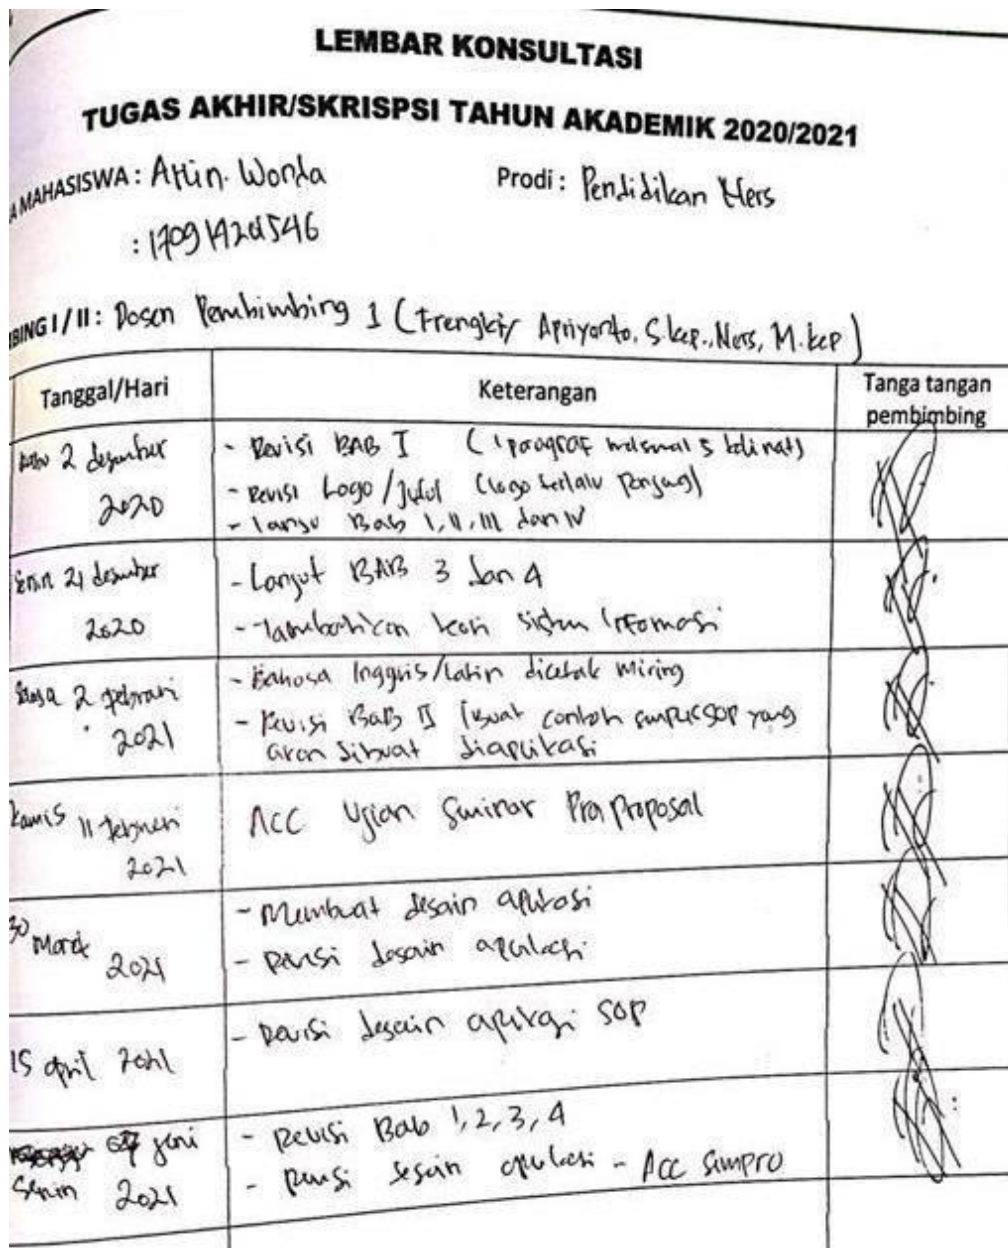 LEMBAR KONSULTASI
TUGAS AKHIR/SKRISPSI TAHUN AKADEMIK 2020/2021
MAHASISWA : Attin. Wonda
Prodi : Pendidikan Ners
BING I / II : Dosen Pembimbing 1 (Frengki Apriyanto, S.kep., Ners, M.kep)
Tanggal/Hari
Keterangan
Tanga tangan
pembimbing
2 desember
2020
- Revisi BAB I (1 paragraf 5
- Revisi Logo / Judul (logo terlalu panjang)
- Bab I, II, III dan IV
21 desember
2020
- Lanjut BAB 3 dan 4
- sistem Informasi
2 februari
2021
- Bahasa Inggris/Latin dicetak miring
- Revisi BAB II (Buat contoh SOP yang
akan dibuat diaplikasi
Kamis 11 februari
2021
ACC Ujian Seminar Pra Proposal
30 Maret
2021
- Membuat desain aplikasi
- Revisi desain aplikasi
15 april 2021
- Revisi desain aplikasi SOP
juni
Senin 2021
- Revisi Bab 1, 2, 3, 4
- Revisi desain aplikasi - Acc Sempro